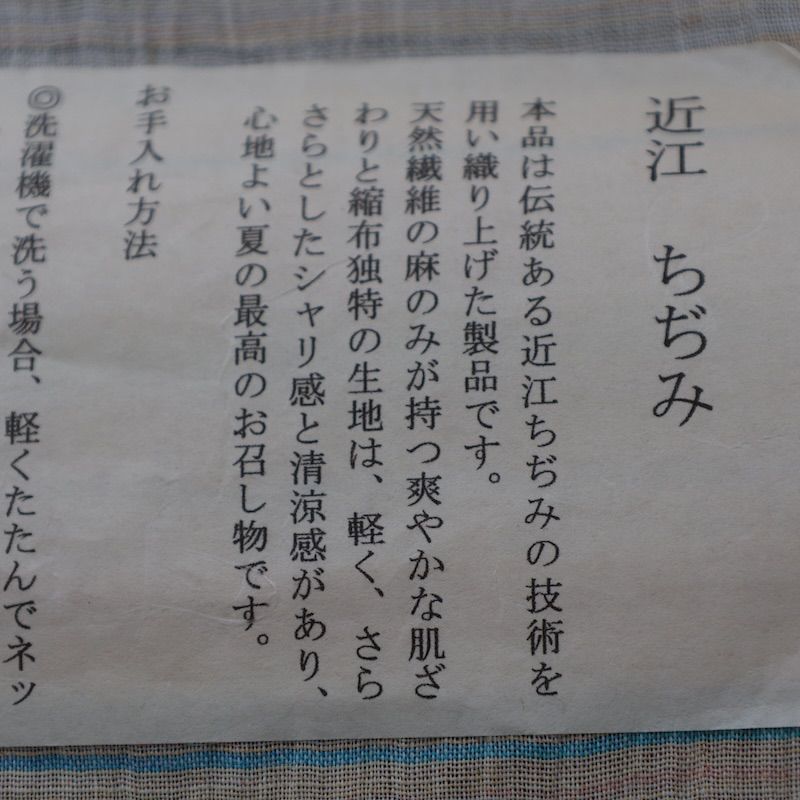 近江 ちぢみ
本品は伝統ある近江ちぢみの技術を
用い織り上げた製品です。
天然繊維の麻のみが持つ爽やかな肌ざ
わりと縮布独特の生地は、軽く、さら
さらとしたシャリ感と清涼感があり、
心地よい夏の最高のお召し物です。
お手入れ方法
◎洗濯機で洗う場合、軽くたたんでネッ